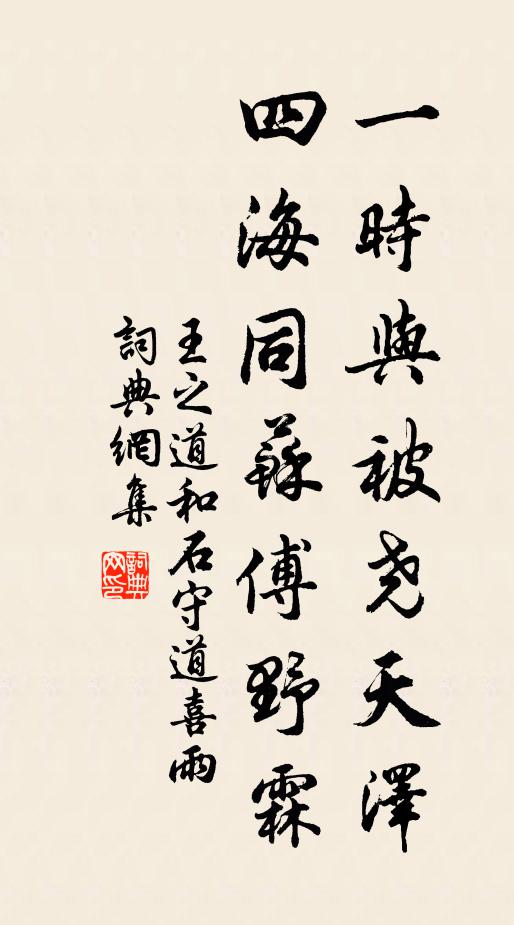 一時與被尧天澤
四海同蘇傅野霖
王之道和石守道喜雨
詞典網集
詞典網印